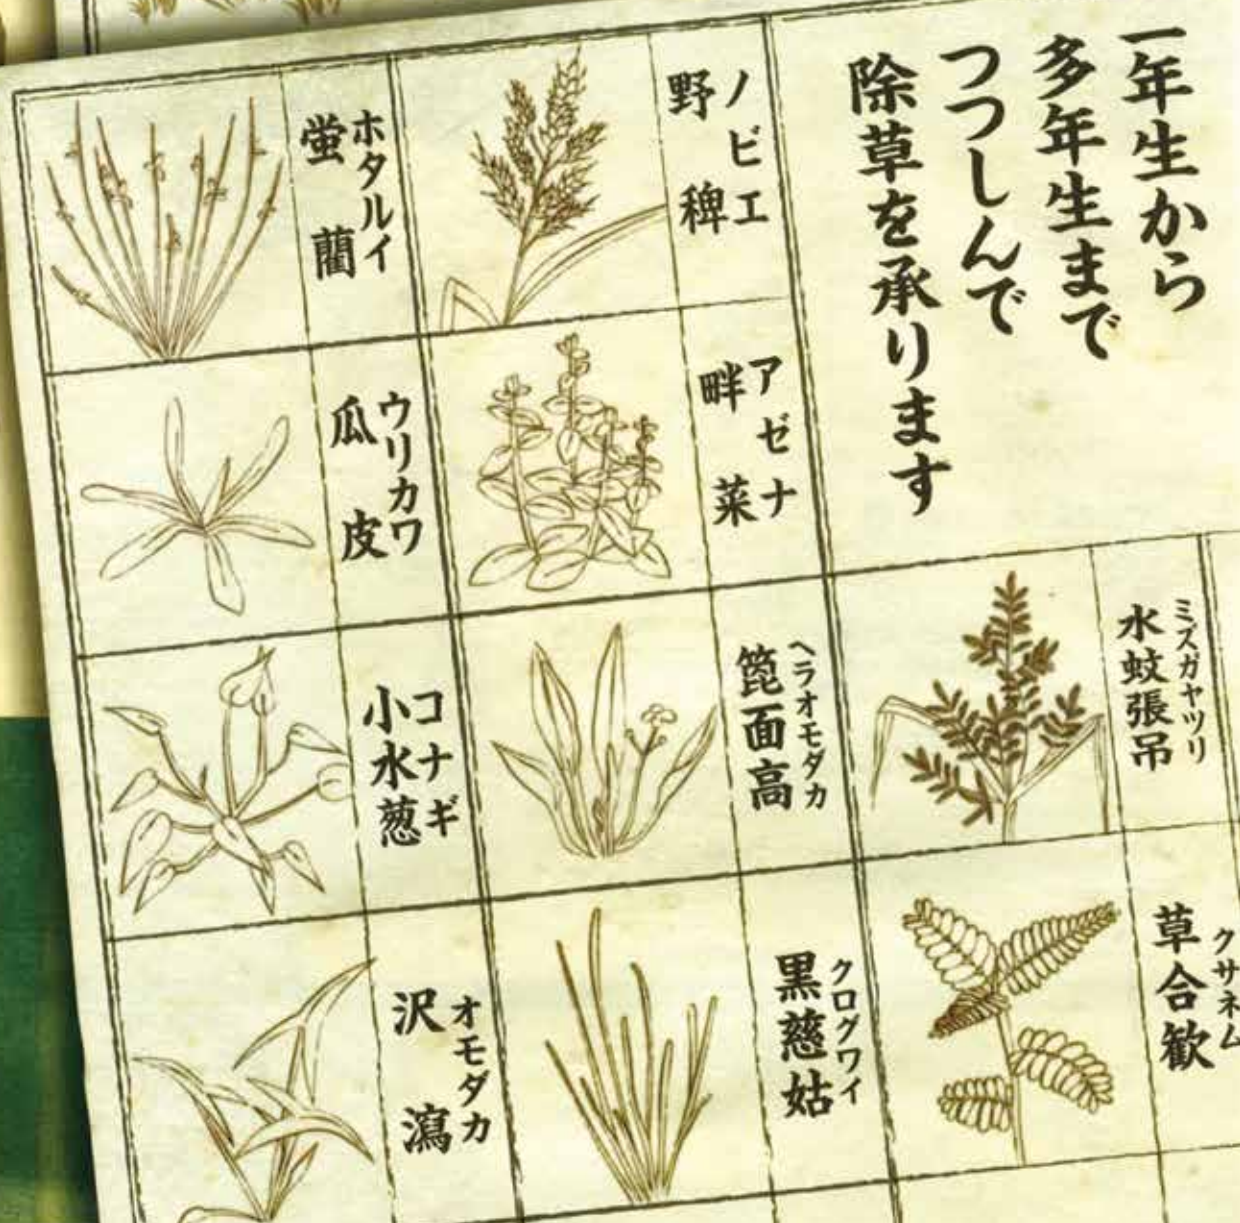 一年生から
多年生まで
つつしんで
除草を承ります
ミズガヤツリ
水蚊張吊
クサネム
草合歓
ノビエ
野稗
アゼナ
畔菜
ヘラオモダカ
箆面高
クログワイ
黒慈姑
ホタルイ
蛍藺
ウリカワ
瓜皮
コナギ
小水葱
オモダカ
沢瀉